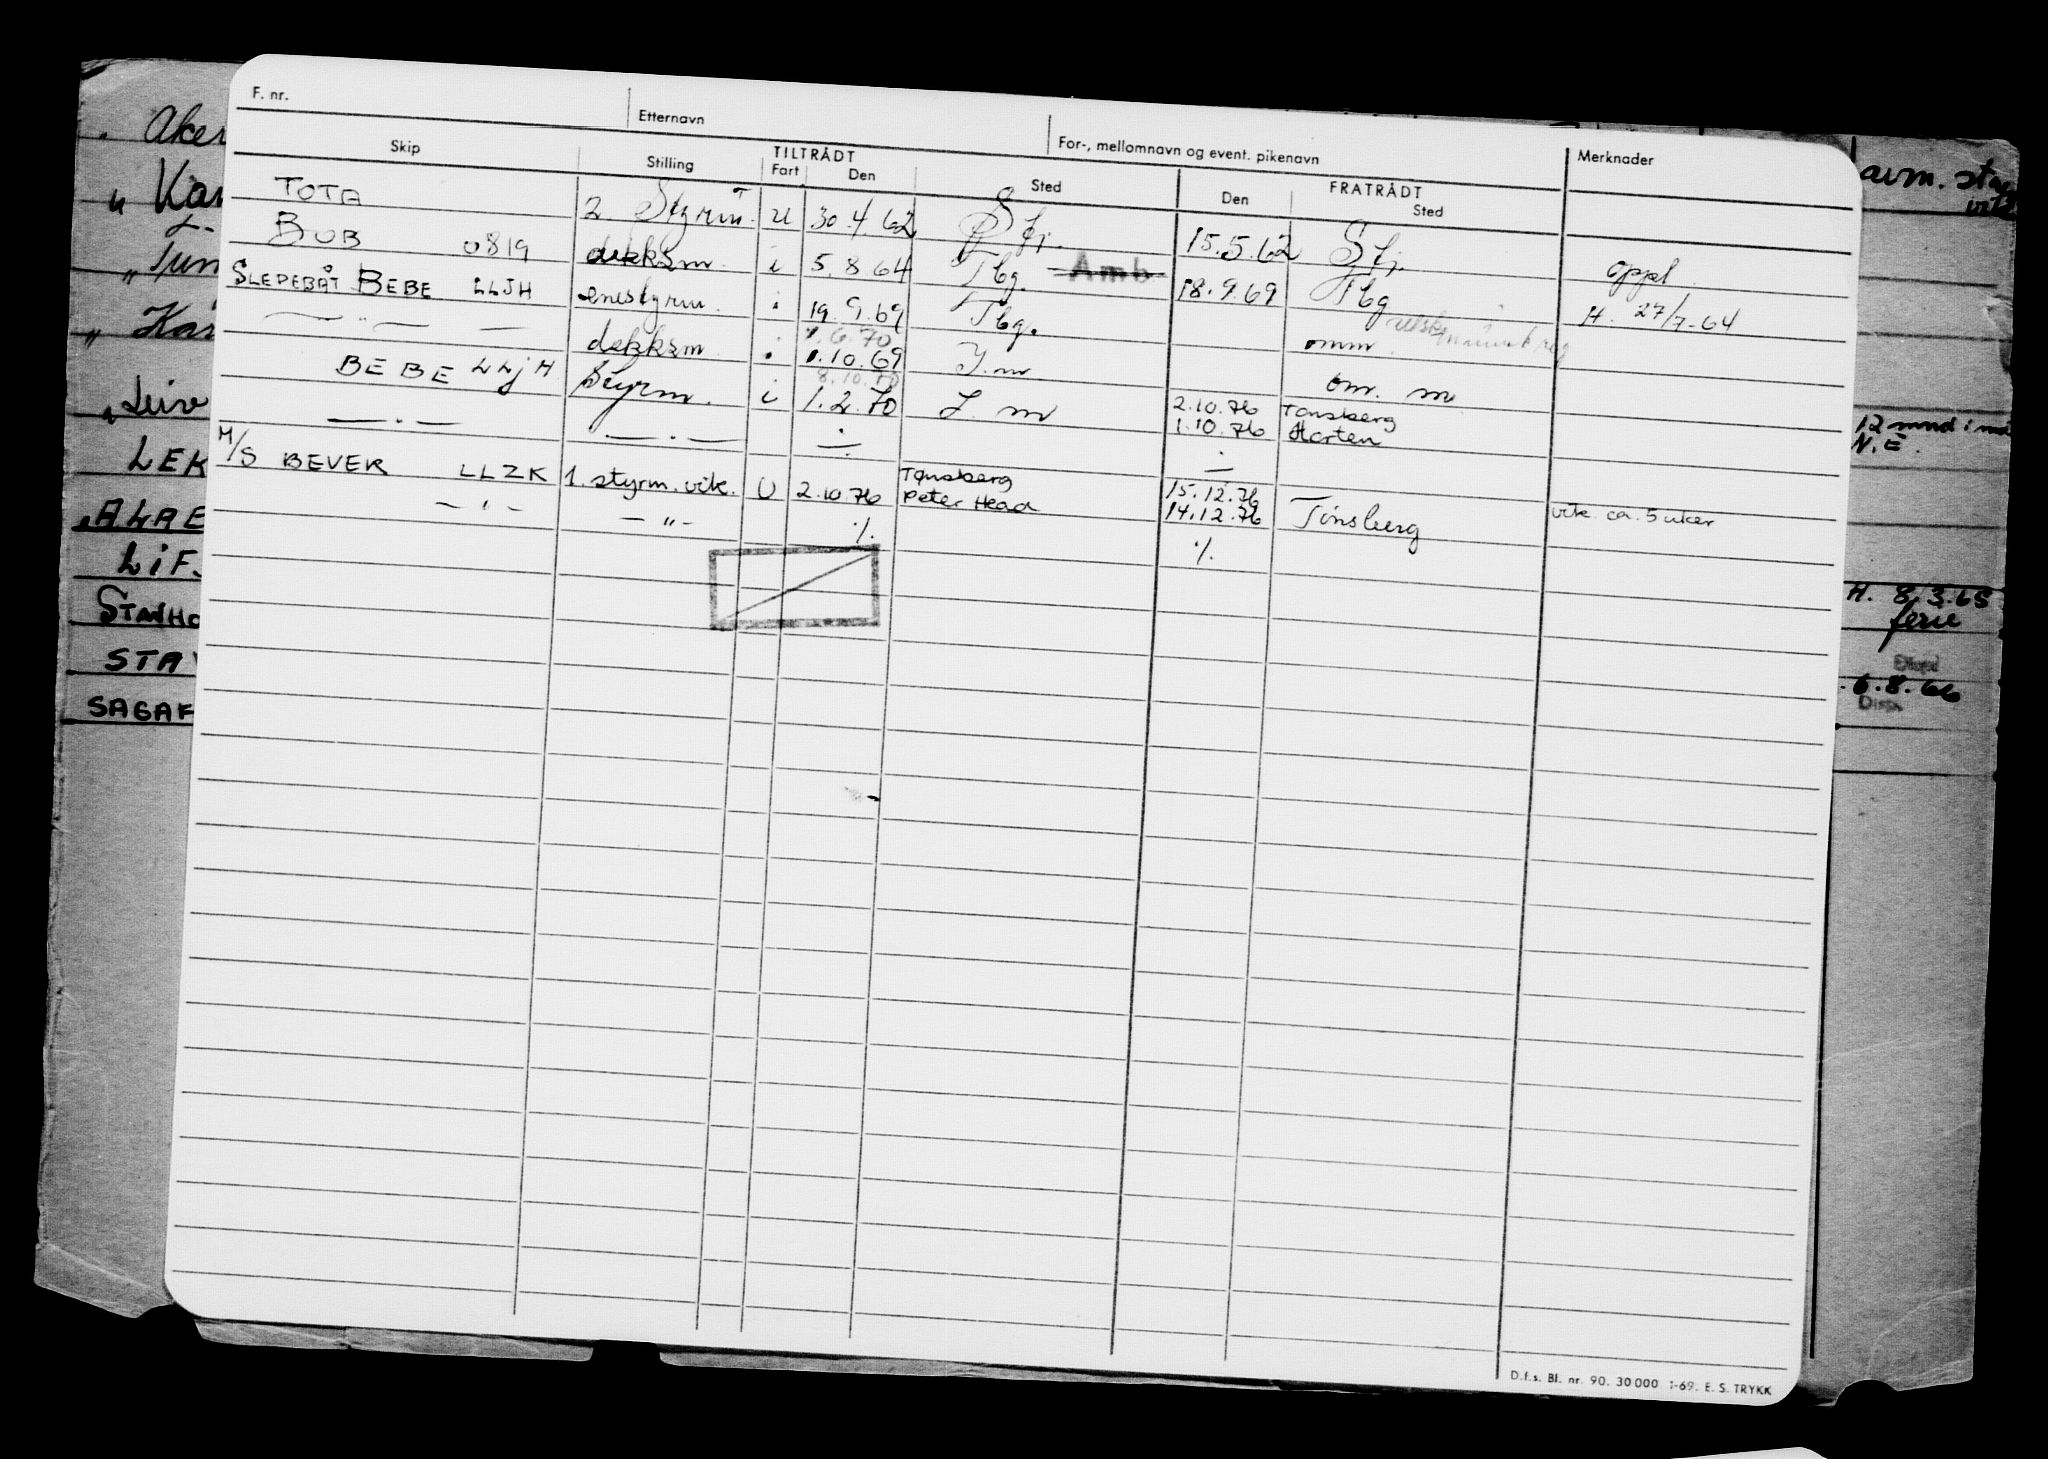 F. nr. Etternavn For-, mellomnavn og event. pikenavn Merknader
Skip Stilling TILTRÅDT Fart Den Sted FRATRÅDT Den Sted
TOTA 2. Styrm. u 30.4.62 Sfj. 15.5.62 Sfj. oppl
BUB U819 dekksm. i 5.8.64 Tbg. Amb 18.9.69 Tbg H. 27/7-64
SLEPEBÅT BEBE LLJH enestyrm. i 19.9.69 Tbg. omm.
— " — — dekksm. 1.6.70
1.10.69 I.m om. m
BEBE LLJH Styrm. i 8.10.70
1.2.70 I. m 2.10.76 Tønsberg
1.10.76 Horten
— . — — . — ÷ ÷
M/S BEVER LLZK 1. styrm. vik. U 2.10.76 Tønsberg
Peter Head 15.12.76
14.12.76 Tønsberg vik. ca. 5 uker
— " — — " — ./. ./.
D.f.s. Bl. nr. 90. 30 000. 1-69. E. S. TRYKK
Aker
" Kar
" Kar
LEK
LIF
STANHO
STAV
SAGAF
avm.
12 mnd i
N.E.
H. 8.3.65
ferie
6.8.66